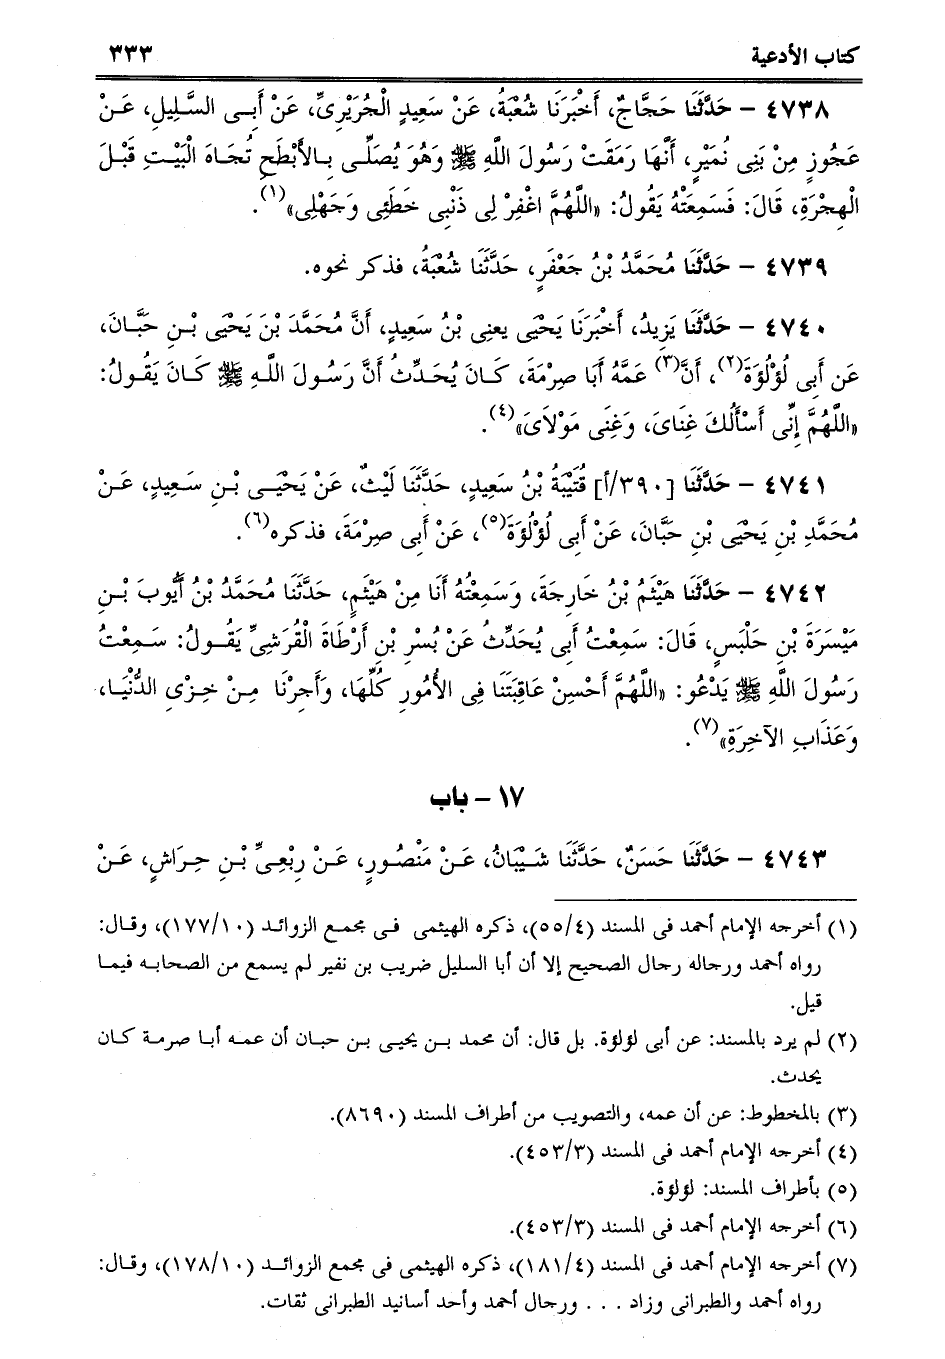 كتاب الأدعية ٣٣٣
٤٧٣٨ - حَدَّثَنَا حَجَّاجٌ، أَخْبَرَنَا شُعْبَةُ، عَنْ سَعِيدٍ الْجُرَيْرِىِّ، عَنْ أَبِى السَّلِيلِ، عَنْ
عَجُوزٍ مِنْ بَنِى نُمَيْرٍ، أَنَّهَا رَمَقَتْ رَسُولَ اللَّهِ ﷺ وَهُوَ يُصَلِّى بِالأَبْطَحِ تُجَاهَ الْبَيْتِ قَبْلَ
الْهِجْرَةِ، قَالَ: فَسَمِعَتْهُ يَقُولُ: «اللَّهُمَّ اغْفِرْ لِى ذَنْبِى خَطَئِى وَجَهْلِى»(١).
٤٧٣٩ - حَدَّثَنَا مُحَمَّدُ بْنُ جَعْفَرٍ، حَدَّثَنَا شُعْبَةُ، فذكر نحوه.
٤٧٤٠ - حَدَّثَنَا يَزِيدُ، أَخْبَرَنَا يَحْيَى يعنِى بْنُ سَعِيدٍ، أَنَّ مُحَمَّدَ بْنَ يَحْيَى بْنِ حَبَّانَ،
عَن أَبِى لُؤْلُؤَةَ(٢)، أَنَّ(٣) عَمَّهُ أَبَا صِرْمَةَ، كَانَ يُحَدِّثُ أَنَّ رَسُولَ اللَّهِ ﷺ كَانَ يَقُولُ:
«اللَّهُمَّ إِنِّى أَسْأَلُكَ غِنَاىَ، وَغِنَى مَوْلاَىَ»(٤).
٤٧٤١ - حَدَّثَنَا [٣٩٠/أ] قُتَيْبَةُ بْنُ سَعِيدٍ، حَدَّثَنَا لَيْثٌ، عَنْ يَحْيَى بْنِ سَعِيدٍ، عَنْ
مُحَمَّدِ بْنِ يَحْيَى بْنِ حَبَّانَ، عَنْ أَبِى لُؤْلُؤَةَ(٥)، عَنْ أَبِى صِرْمَةَ، فذكره(٦).
٤٧٤٢ - حَدَّثَنَا هَيْثَمُ بْنُ خَارِجَةَ، وَسَمِعْتُهُ أَنَا مِنْ هَيْثَمٍ، حَدَّثَنَا مُحَمَّدُ بْنُ أَيُّوبَ بْنِ
مَيْسَرَةَ بْنِ حَلْبَسٍ، قَالَ: سَمِعْتُ أَبِى يُحَدِّثُ عَنْ بُسْرِ بْنِ أَرْطَاةَ الْقُرَشِىِّ يَقُولُ: سَمِعْتُ
رَسُولَ اللَّهِ ﷺ يَدْعُو: «اللَّهُمَّ أَحْسِنْ عَاقِبَتَنَا فِى الأُمُورِ كُلِّهَا، وَأَجِرْنَا مِنْ خِزْىِ الدُّنْيَا،
وَعَذَابِ الآخِرَةِ»(٧).
١٧ - باب
٤٧٤٣ - حَدَّثَنَا حَسَنٌ، حَدَّثَنَا شَيْبَانُ، عَنْ مَنْصُورٍ، عَنْ رِبْعِىِّ بْنِ حِرَاشٍ، عَنْ
(١) أخرجه الإمام أحمد فى المسند (٥٥/٤)، ذكره الهيثمى فى مجمع الزوائد (١٧٧/١٠)، وقال:
رواه أحمد ورجاله رجال الصحيح إلا أن أبا السليل ضريب بن نفير لم يسمع من الصحابه فيما
قيل.
(٢) لم يرد بالمسند: عن أبى لؤلؤة. بل قال: أن محمد بن يحيى بن حبان أن عمه أبا صرمة كان
يحدث.
(٣) بالمخطوط: عن أن عمه، والتصويب من أطراف المسند (٨٦٩٠).
(٤) أخرجه الإمام أحمد فى المسند (٤٥٣/٣).
(٥) بأطراف المسند: لؤلؤة.
(٦) أخرجه الإمام أحمد فى المسند (٤٥٣/٣).
(٧) أخرجه الإمام أحمد فى المسند (١٨١/٤)، ذكره الهيثمى فى مجمع الزوائد (١٧٨/١٠)، وقال:
رواه أحمد والطبرانى وزاد . . . ورجال أحمد وأحد أسانيد الطبرانى ثقات.